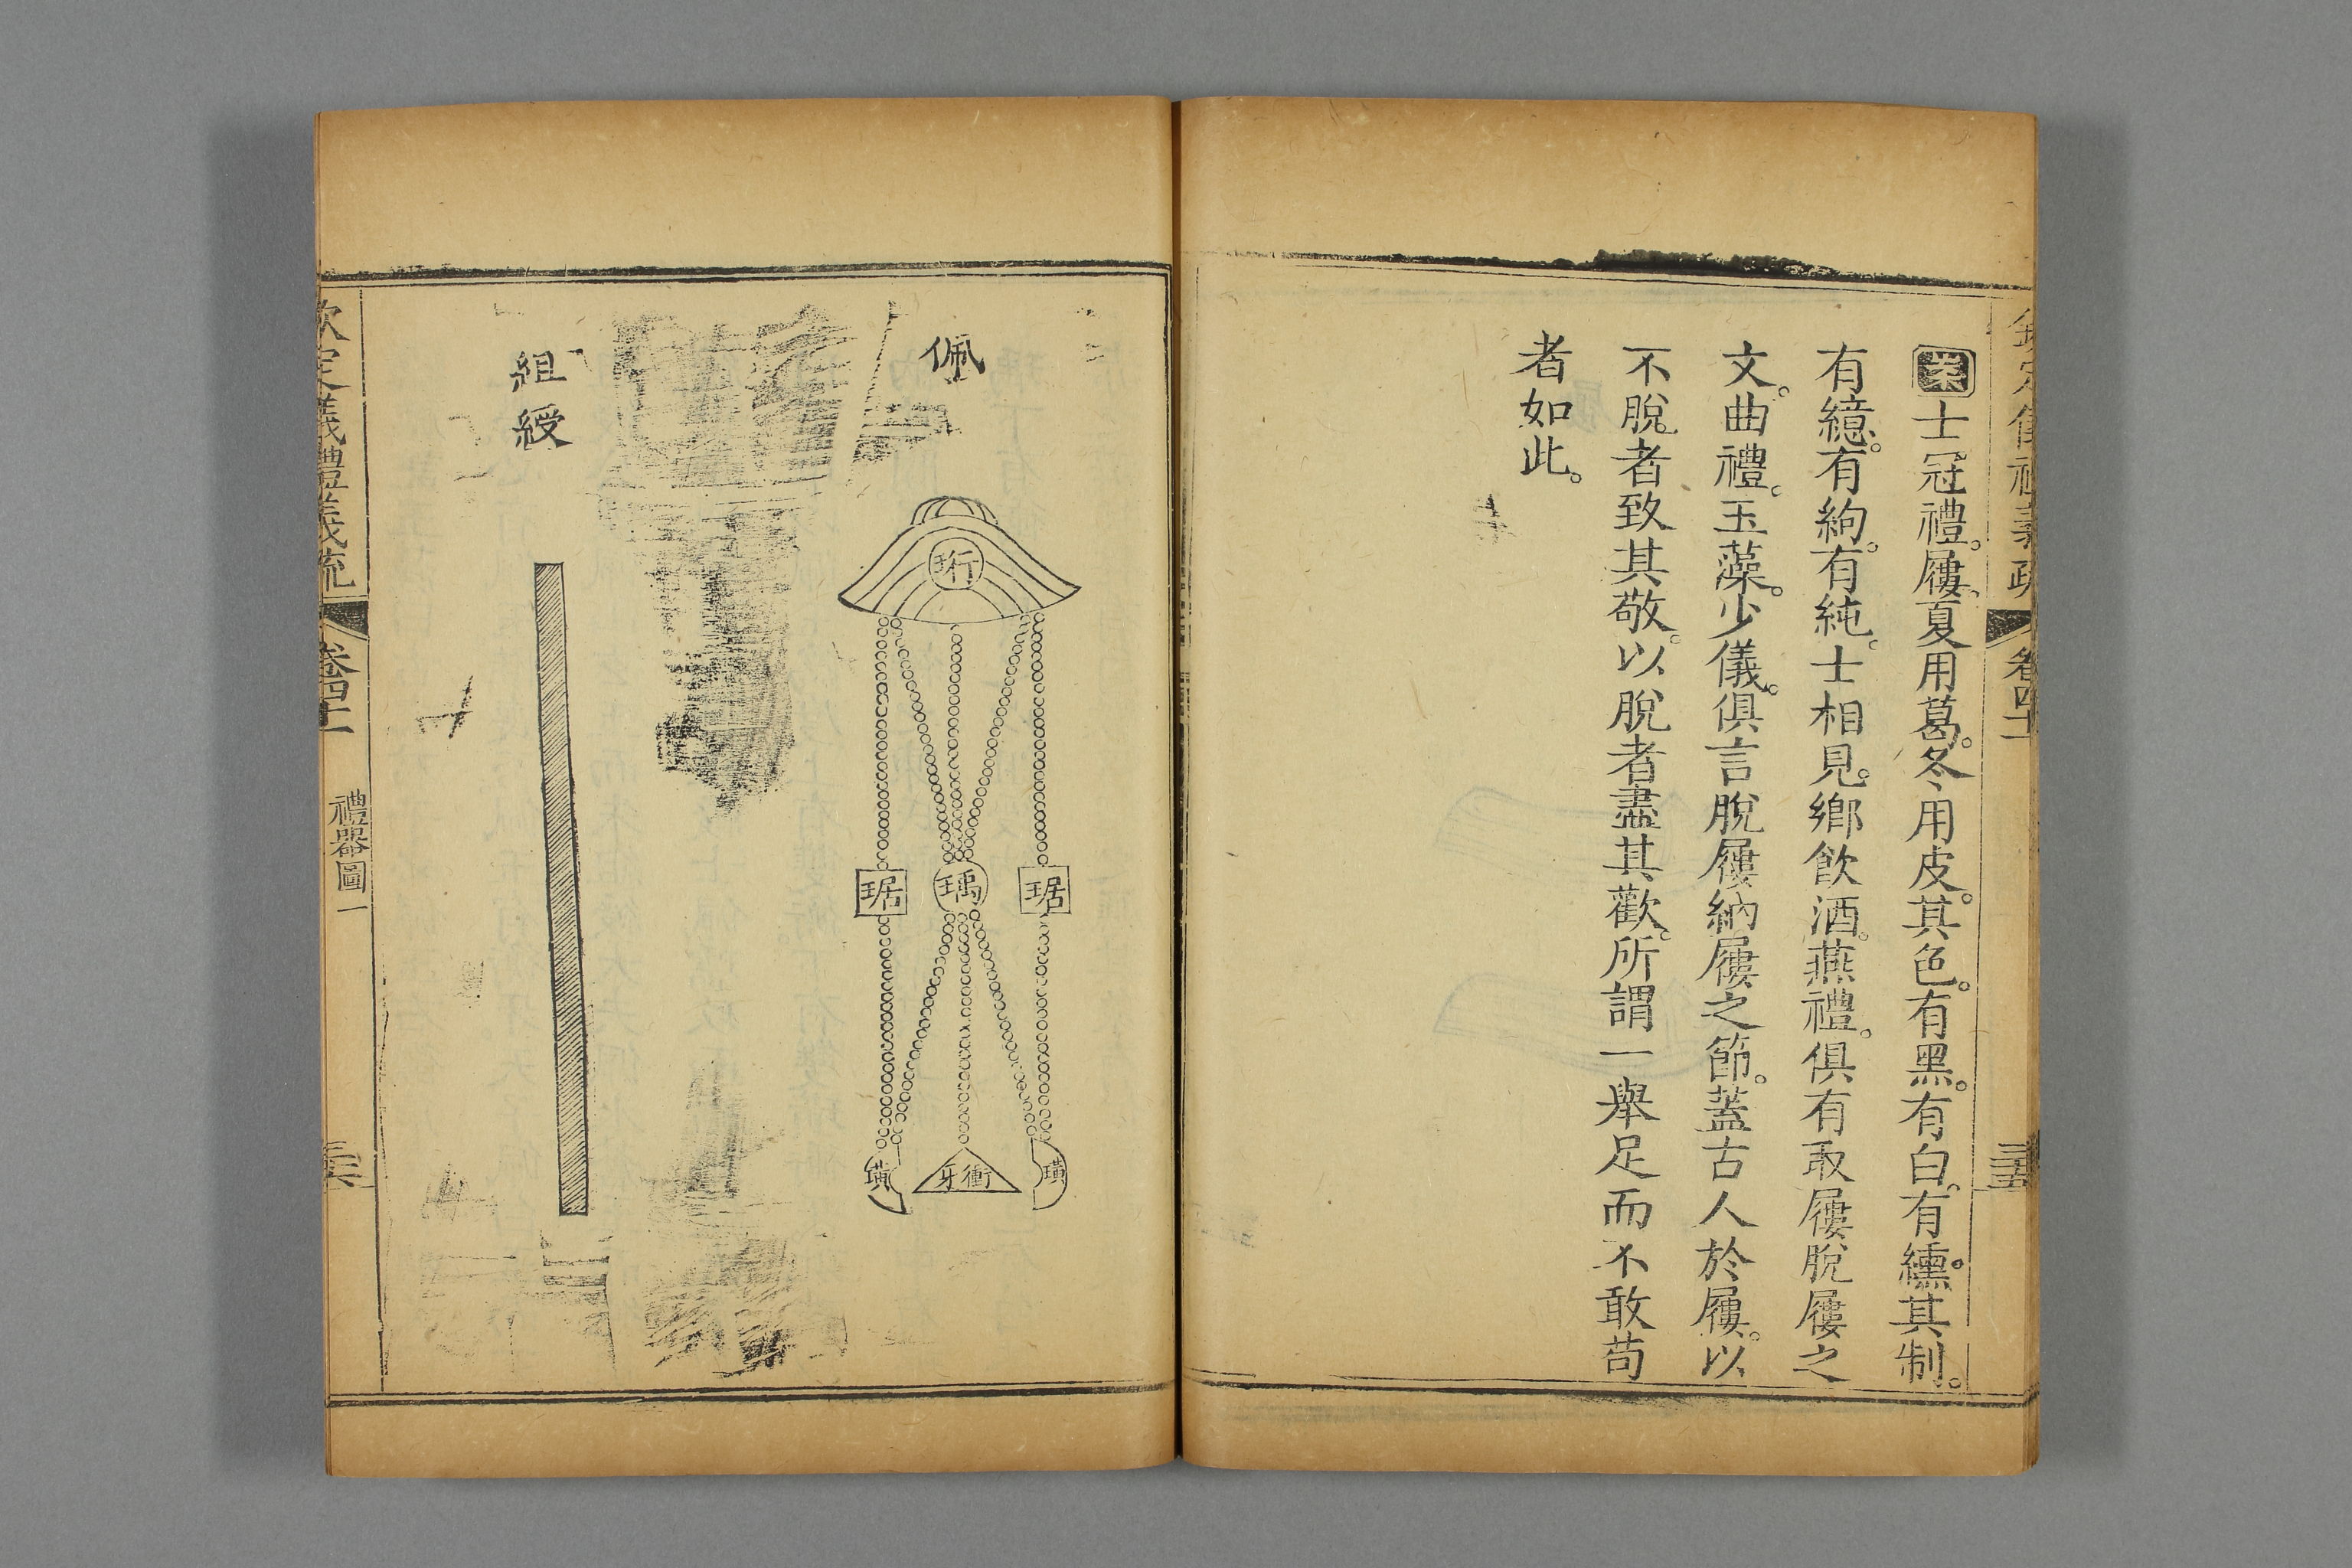 欽定儀禮義疏 卷四十一 三五
案士冠禮。屨。夏用葛。冬用皮。其色。有黑。有白。有纁。其制。
有繶。有絇。有純。士相見。鄉飲酒。燕禮。俱有取屨脫屨之
文。曲禮。玉藻。少儀。俱言脫屨納屨之節。蓋古人於屨。以
不脫者致其敬。以脫者盡其歡。所謂一舉足而不敢苟
者如此。
佩
珩
琚 瑀 琚
璜 衝牙 璜
組綬
欽定儀禮義疏 卷四十一 禮器圖一 三六